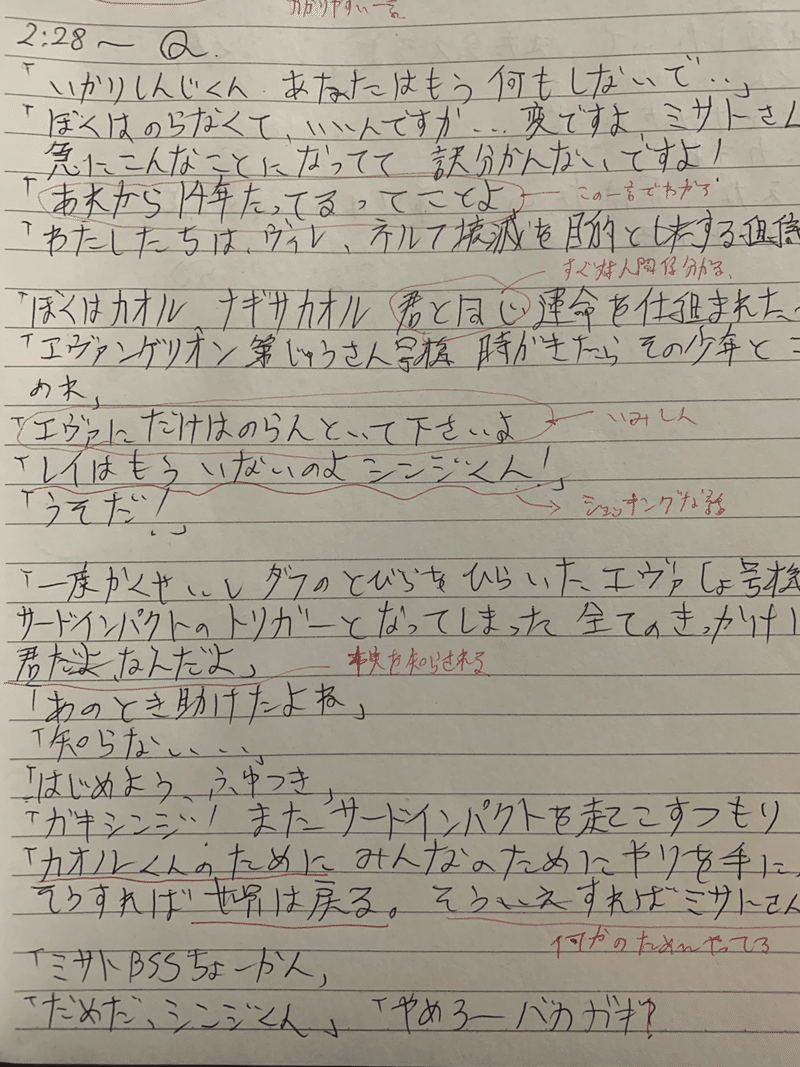 わかりやすい言
2:28〜 Q
「いかりしんじくん あなたはもう 何もしないで‥」
「ぼくは、のらなくて、いいんですか… 変ですよ、ミサトさん
急にこんなことになってて 訳分かんないですよ!
「あれから 14年たってるってことよ、
この一言でわかる
「わたしたちは、ヴィレ、ネルフ壊滅を目的とする組織
すぐ対人関係分かる、
「ぼくはカオル ナギサカオル 君とはじ運命を仕組まれた
「エヴァンゲリオン 第じゅうさん号機 時がきたら その少年と
めれ」
「エヴァにだけはのらんといて下さいよ
いみしん
「レイはもう いないのよ シンジくん!」
「うそだ!」
ショッキングな話
「一度かくせいし ダフのとびらをひらいた エヴァしょ号機
サードインパクトのトリガーとなってしまった 全てのきっかけ
君だよ なんだよ」
真実を知らされる
「あのとき助けたよね」
「知らない…」
「はじめよう、ふゆつき」
「ガキシンジ! また サードインパクトを起こすつもり
「カオルくんのために みんなのために やりを手に、
そうすれば 世界は戻る。 そうすれば ミサトさん
何かのためにやってる
「ミサトBSSちょーかん」
「だめだ、シンジくん」 「やめろーバカガキ?